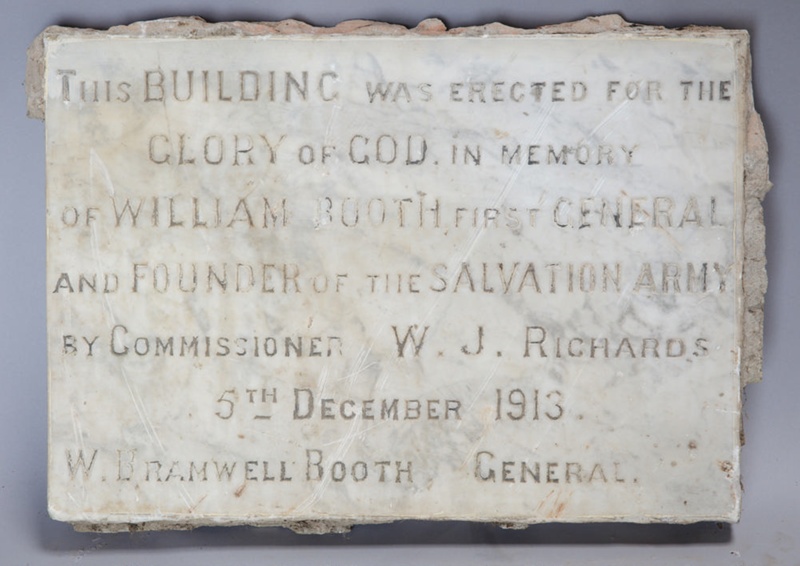 THIS BUILDING WAS ERECTED FOR THE
GLORY OF GOD. IN MEMORY
OF WILLIAM BOOTH, FIRST GENERAL
AND FOUNDER OF THE SALVATION ARMY
BY COMMISSIONER W. J. RICHARDS
5TH DECEMBER 1913.
W. BRAMWELL BOOTH GENERAL.